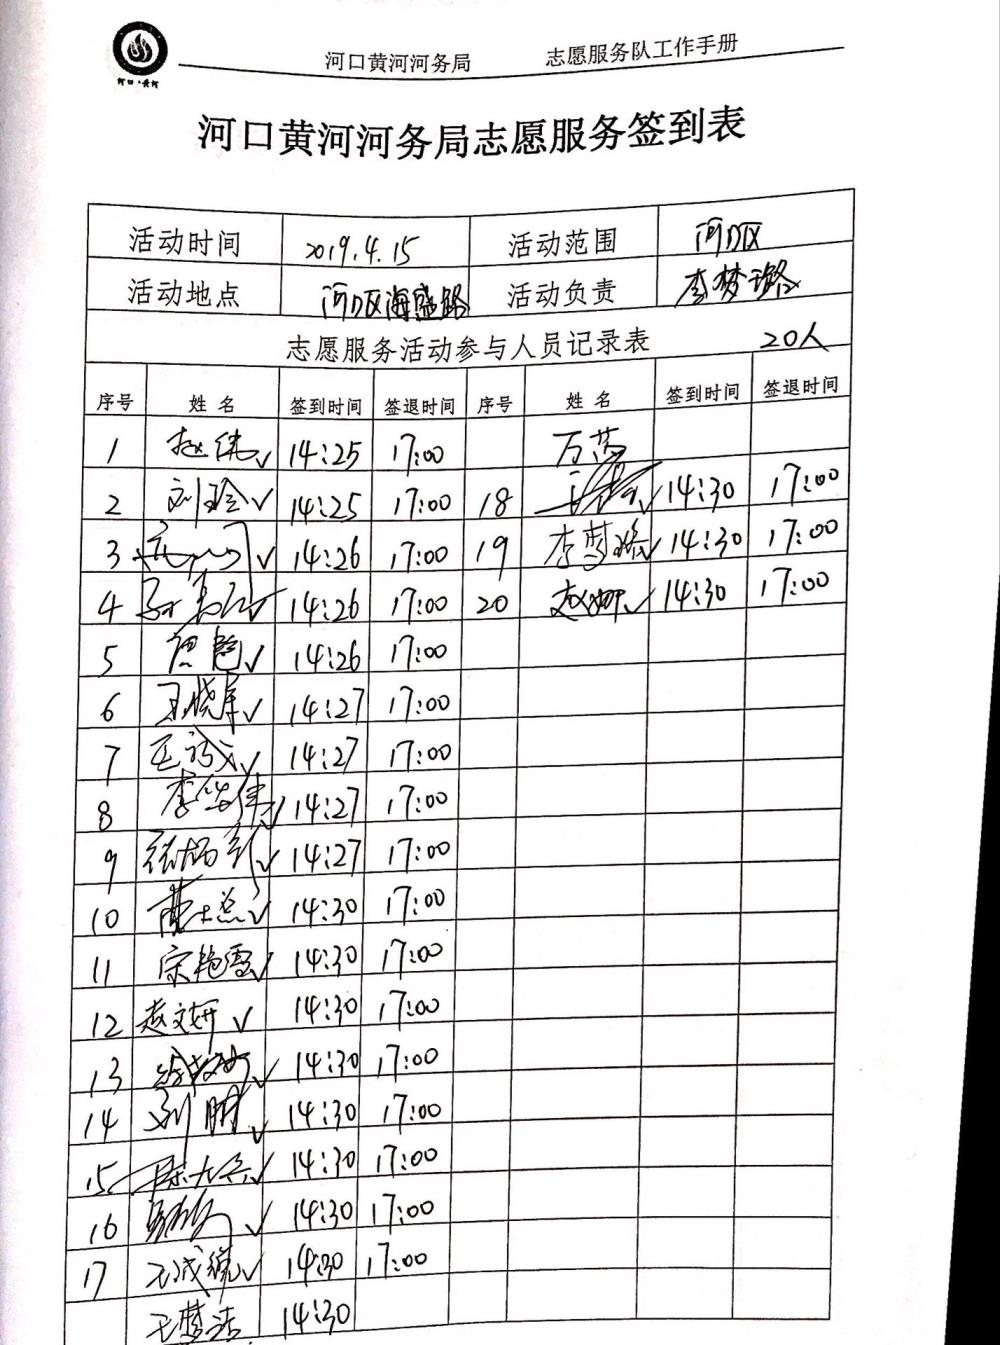 河口·黄河
河口黄河河务局 志愿服务队工作手册
河口黄河河务局志愿服务签到表
活动时间 2019.4.15 活动范围 河口区
活动地点 河口区海盛路 活动负责 李梦璐
志愿服务活动参与人员记录表 20人
序号 姓名 签到时间 签退时间 序号 姓名 签到时间 签退时间
1 赵伟✓ 14:25 17:00 万芳
2 刘玲✓ 14:25 17:00 18 ✓ 14:30 17:00
3 ✓ 14:26 17:00 19 李梦璐✓ 14:30 17:00
4 ✓ 14:26 17:00 20 赵娜✓ 14:30 17:00
5 ✓ 14:26 17:00
6 王晓军✓ 14:27 17:00
7 ✓ 14:27 17:00
8 ✓ 14:27 17:00
9 ✓ 14:27 17:00
10 ✓ 14:30 17:00
11 宋艳雪✓ 14:30 17:00
12 赵文妍✓ 14:30 17:00
13 ✓ 14:30 17:00
14 刘朋✓ 14:30 17:00
15 ✓ 14:30 17:00
16 ✓ 14:30 17:00
17 ✓ 14:30 17:00
王梦洁 14:30